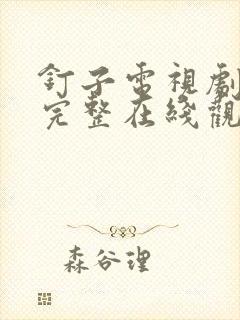 釘子電視劇
完整在綫觀
森谷理